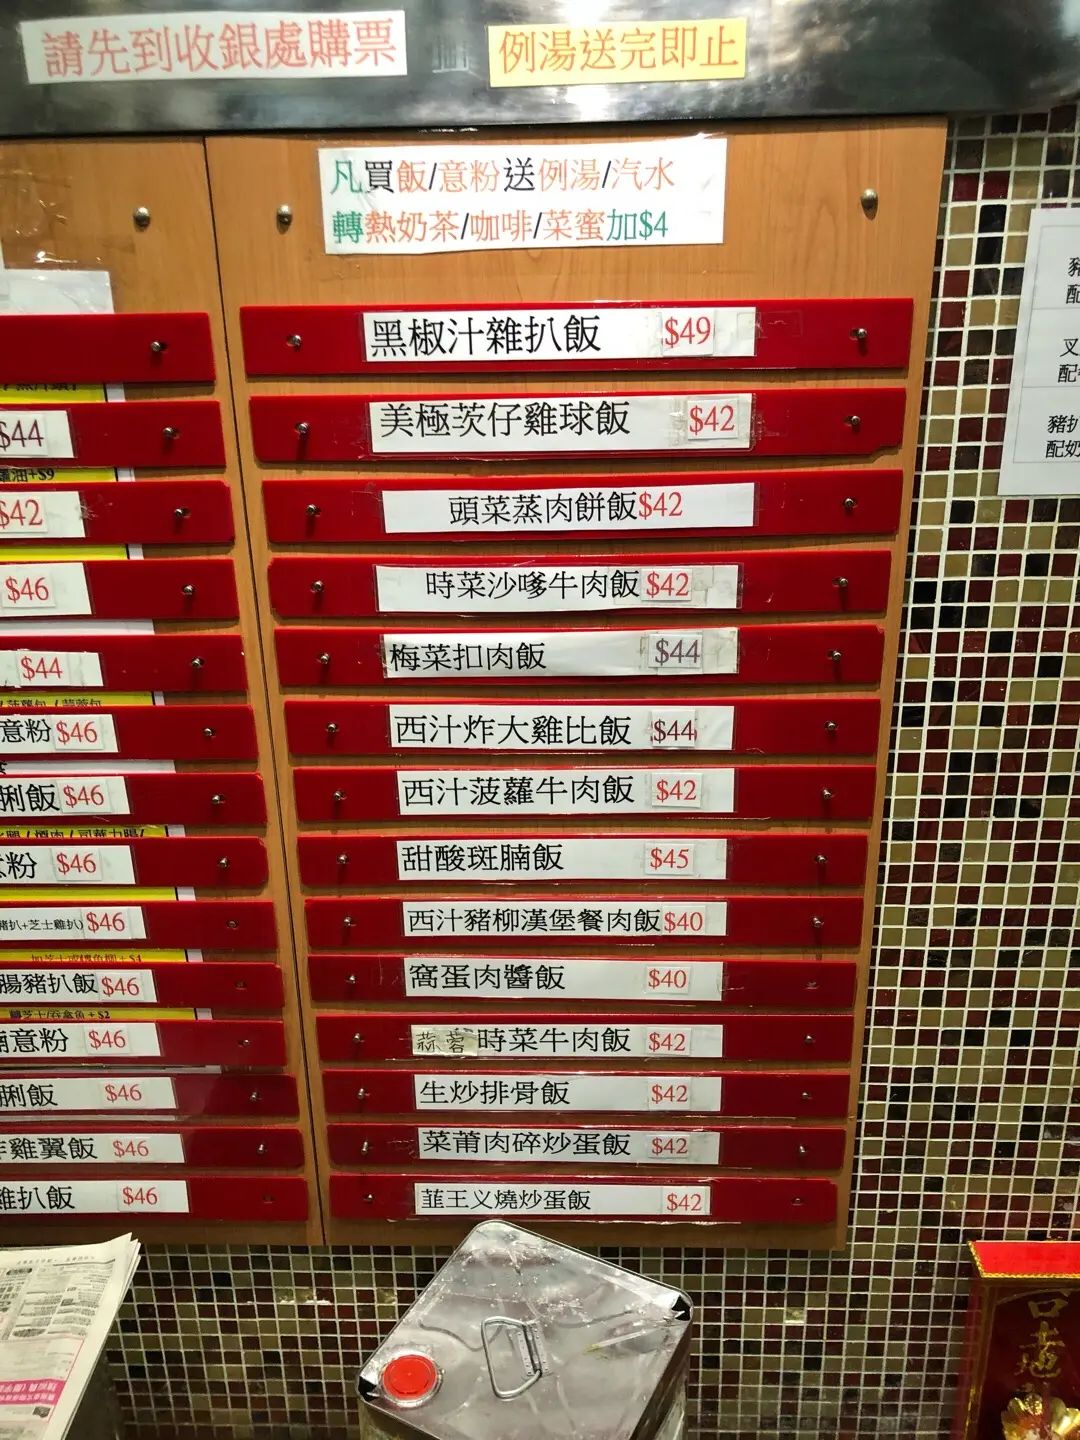 請先到收銀處購票
例湯送完即止
凡買飯/意粉送例湯/汽水
轉熱奶茶/咖啡/菜蜜加$4
黑椒汁雜扒飯 $49
美極茨仔雞球飯 $42
頭菜蒸肉餅飯$42
時菜沙嗲牛肉飯 $42
梅菜扣肉飯 $44
西汁炸大雞比飯 $44
西汁菠蘿牛肉飯 $42
甜酸斑腩飯 $45
西汁豬柳漢堡餐肉飯$40
窩蛋肉醬飯 $40
蒜蓉時菜牛肉飯 $42
生炒排骨飯 $42
菜莆肉碎炒蛋飯 $42
韮王义燒炒蛋飯 $42
$44
油+$9
$42
$46
$44
意粉 $46
脷飯 $46
粉 $46
豬扒+芝士雞扒) $46
腸豬扒飯 $46
轉芝士/吞拿魚+$2
意粉 $46
脷飯 $46
雞翼飯 $46
雞扒飯 $46
叉
配
豬扒
配奶